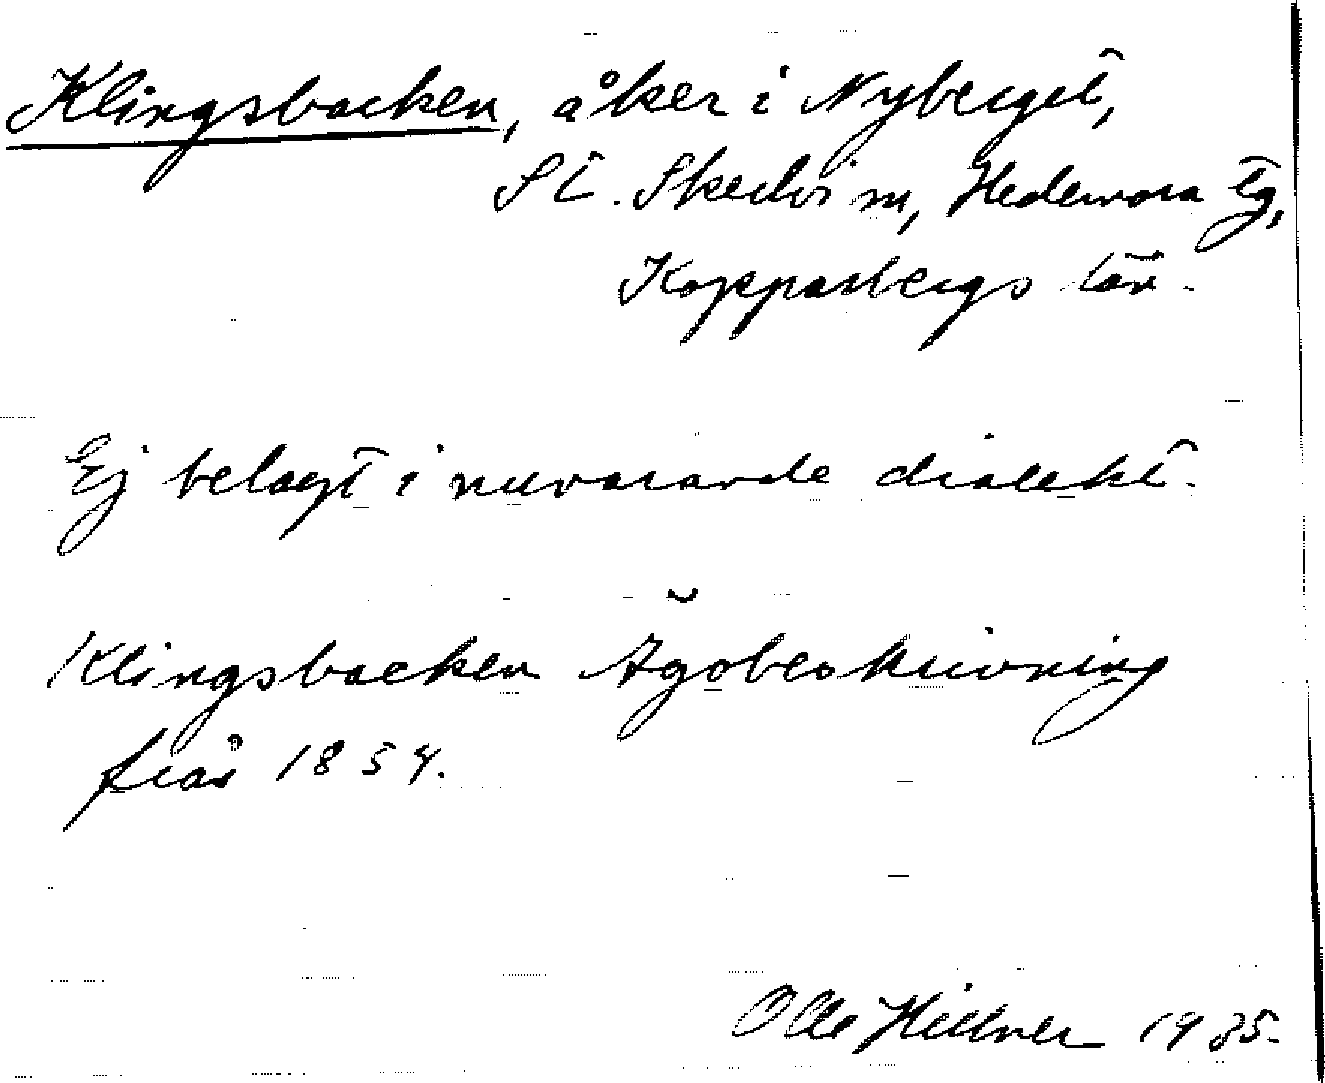 Klingsbacken, åker i Nyberget,
St. Skedvi sn, Hedemora tg,
Kopparbergs län.
Ej belagt i nuvarande dialekt.
Klingsbacken Ägobeskrivning
från 1854.
Olle Hillner 1935.